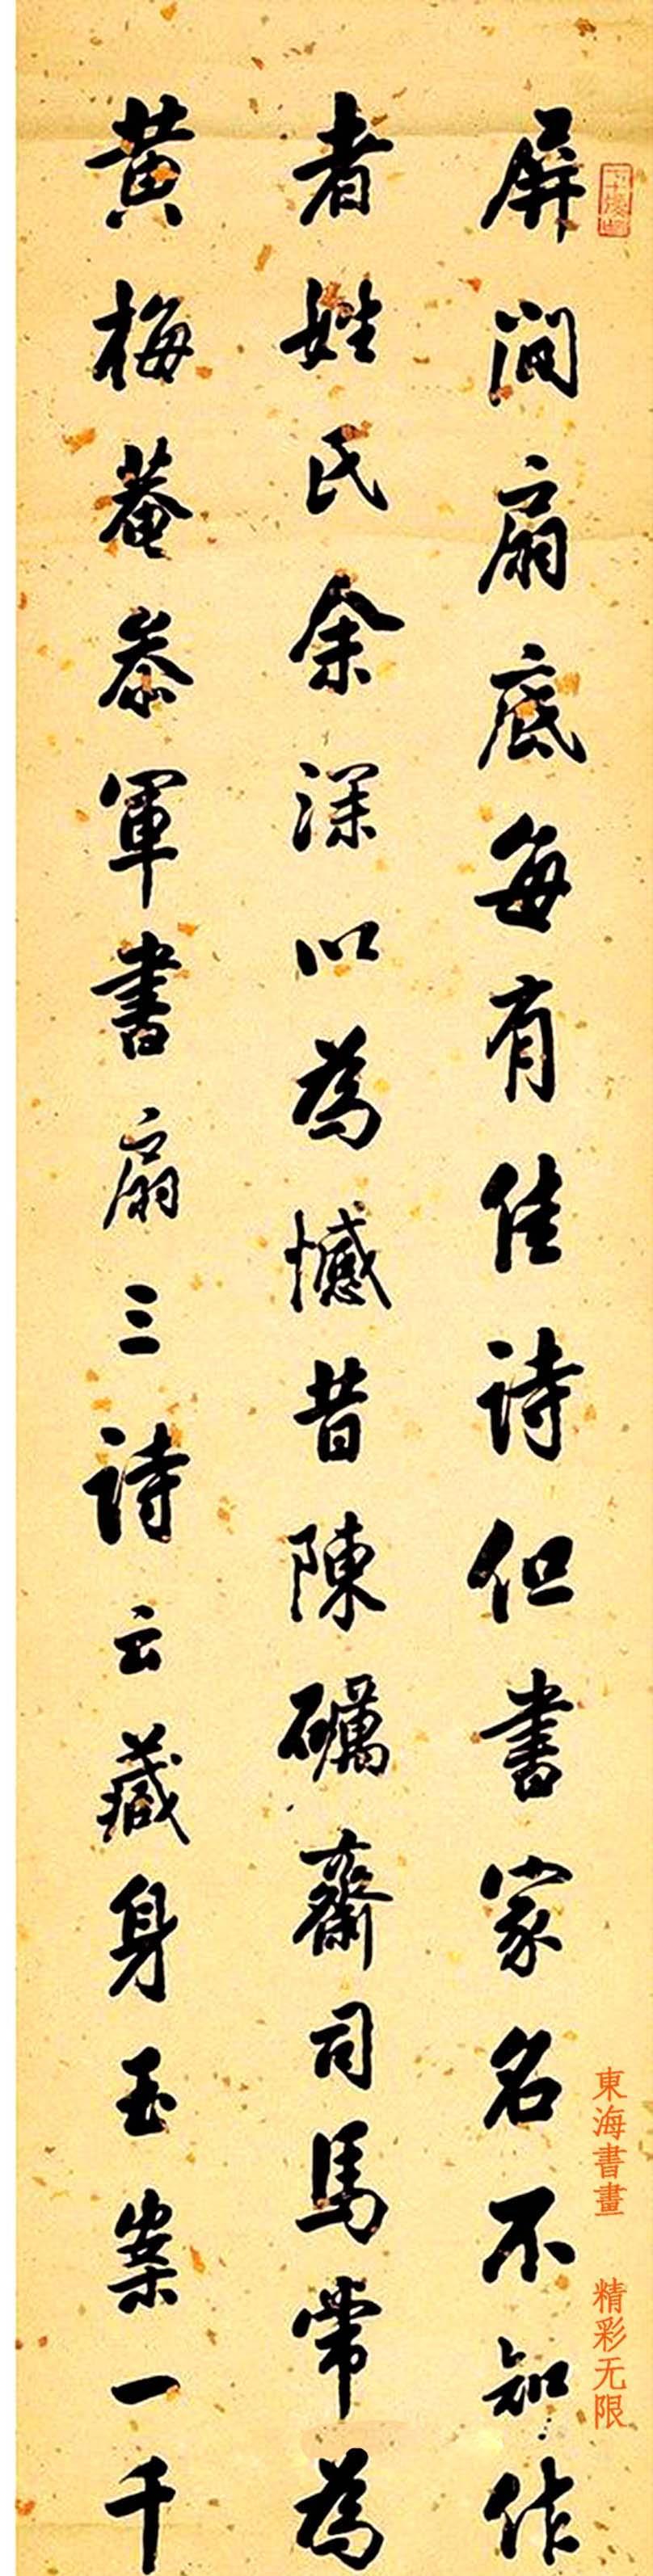 屏間扇底每有佳詩但書家名不知作
者姓氏余深以為憾昔陳礪齋司馬常為
黃梅菴叅軍書扇三詩云藏身玉案一千
東海書畫 精彩无限